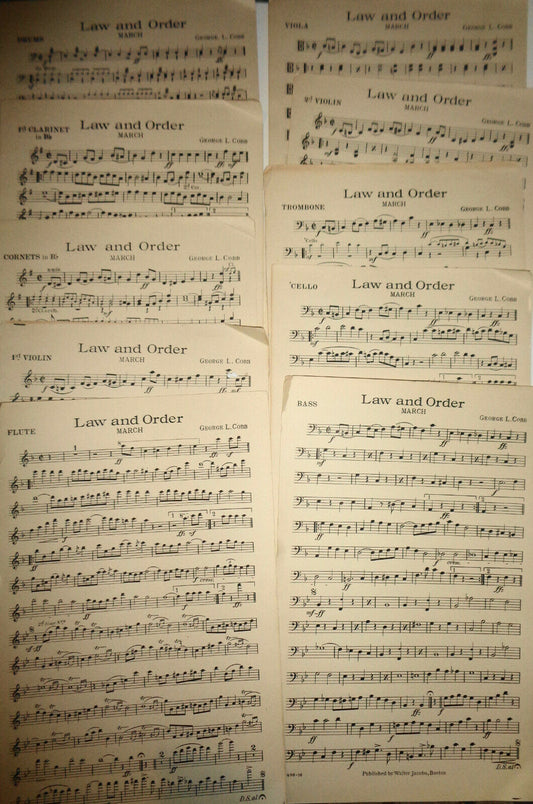 Law and Order
DRUMS
MARCH
GEORGE L. COBB
Law and Order
1st CLARINET
in Bb
MARCH
GEORGE L. COBB
Law and Order
CORNETS in Bb
MARCH
GEORGE L. COBB
Law and Order
1st VIOLIN
MARCH
GEORGE L. COBB
Law and Order
FLUTE
MARCH
GEORGE L. COBB
ff
D.S. al
Law and Order
VIOLA
MARCH
GEORGE L. COBB
Law and Order
2d VIOLIN
MARCH
GEORGE L. COBB
Law and Order
TROMBONE
MARCH
GEORGE L. COBB
'Cello
Law and Order
'CELLO
MARCH
GEORGE L. COBB
Law and Order
BASS
MARCH
GEORGE L. COBB
ff
mf
cresc.
mf-ff
D.S. al
Published by Walter Jacobs, Boston